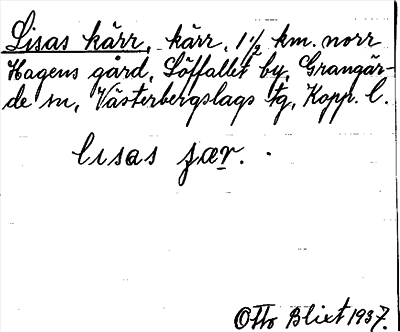 Lisas kärr, kärr, 1½ km. norr
Hagens gård, Löffallet by, Grangär-
de sn, Västerbergslags tg, Kopp. l.
lisas ʃær.
Otto Blixt 1937.